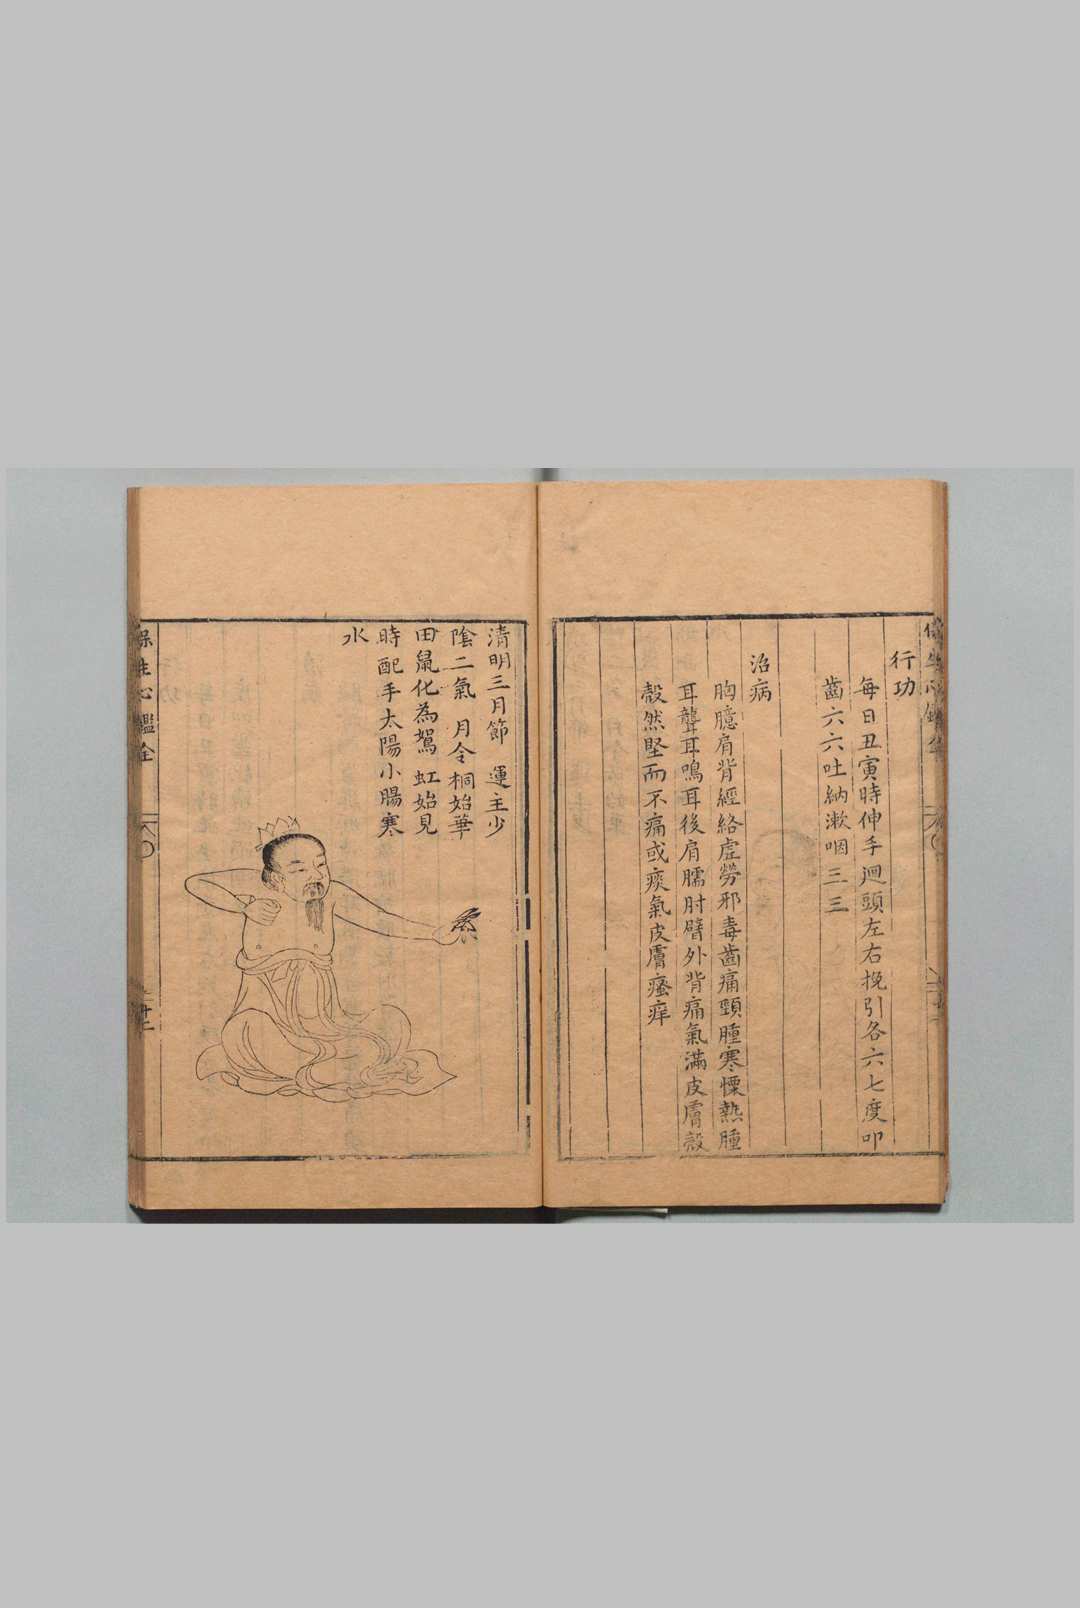 行功
每日丑寅時伸手迴頭左右挽引各六七度叩
齒六六吐納漱咽三三
治病
胸臆肩背經絡虛勞邪毒齒痛頸腫寒慄熱腫
耳聾耳鳴耳後肩臑肘臂外背痛氣滿皮膚殼
殼然堅而不痛或痰氣皮膚瘙痒
清明三月節 運主少
陰二氣 月令桐始華
田鼠化為鴽 虹始見
時配手太陽小腸寒
水
保生心鑑全